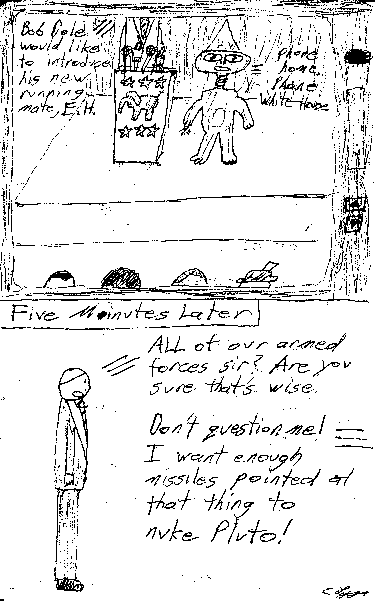 Bob Dole
would like
to introduce
his new
running
mate, E.T.
phone
home.
Phone
White House
Five Minutes Later
ALL of our armed
forces sir? Are you
sure that's wise.
Don't question me!
I want enough
missiles pointed at
that thing to
nuke Pluto!